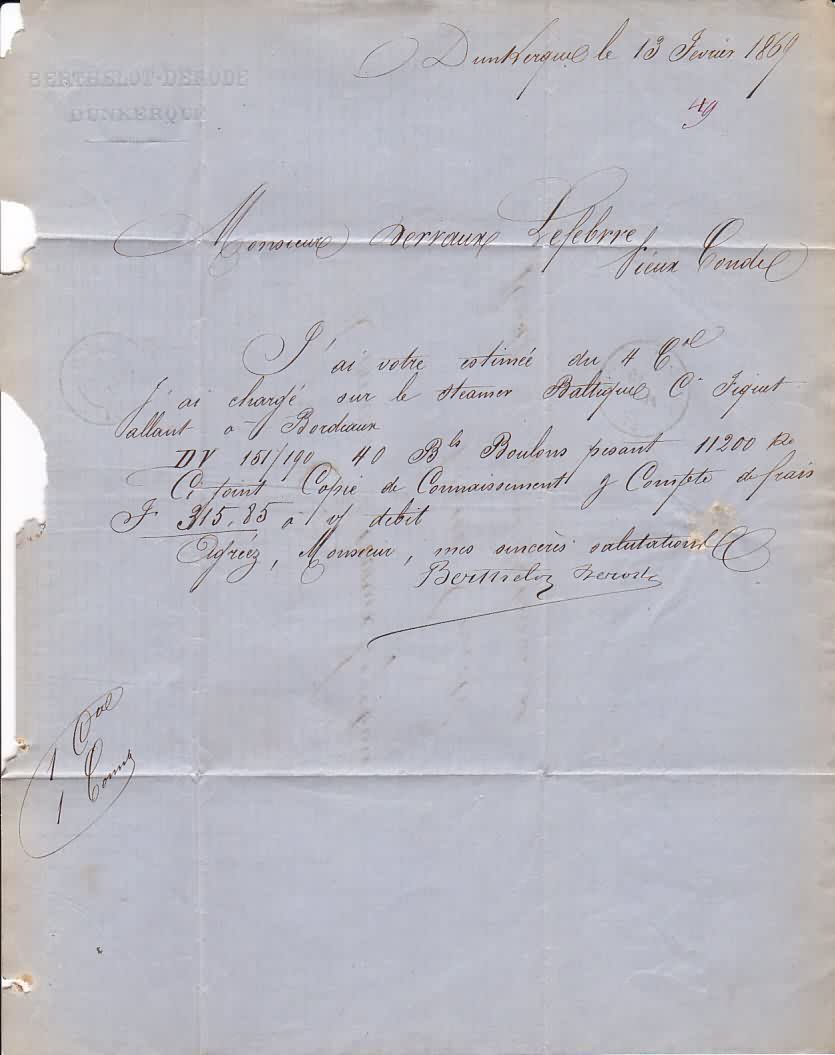 Dunkerque le 13 Fevrier 1869
BERTHELOT-DERODE
DUNKERQUE
49
Monsieur Derraux Lefebvre
Vieux Condé
J'ai votre estimée du 4 Cel
j'ai chargé sur le steamer Baltique Ce Fiquet
allant à Bordeaux
DV 151/190 40 Bls Boulons pesant 11200 Ko
Ci joint Copie de Connaissement & Compte de frais
F 315,85 à v/ débit
Agréez, Monsieur, mes sincères salutations
Berthelot Derode
1
1 Conn